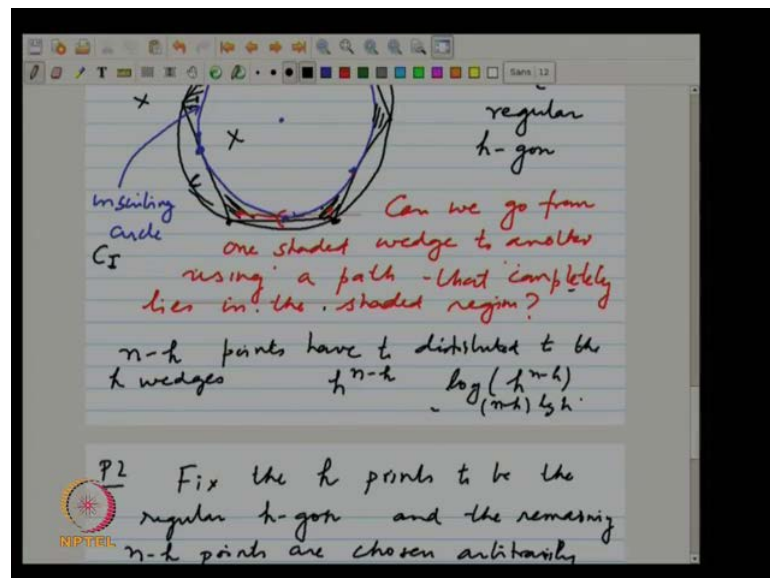 Sans 12
regular
h-gon
inscribing
circle
C_I
Can we go from
one shaded wedge to another
using a path that completely
lies in the shaded region?
n-h points have to distributed to the
h wedges h^{n-h} log(h^{n-h})
(n-h) lg h
P2 Fix the h points to be the
regular h-gon and the remaining
n-h points are chosen arbitrarily
NPTEL